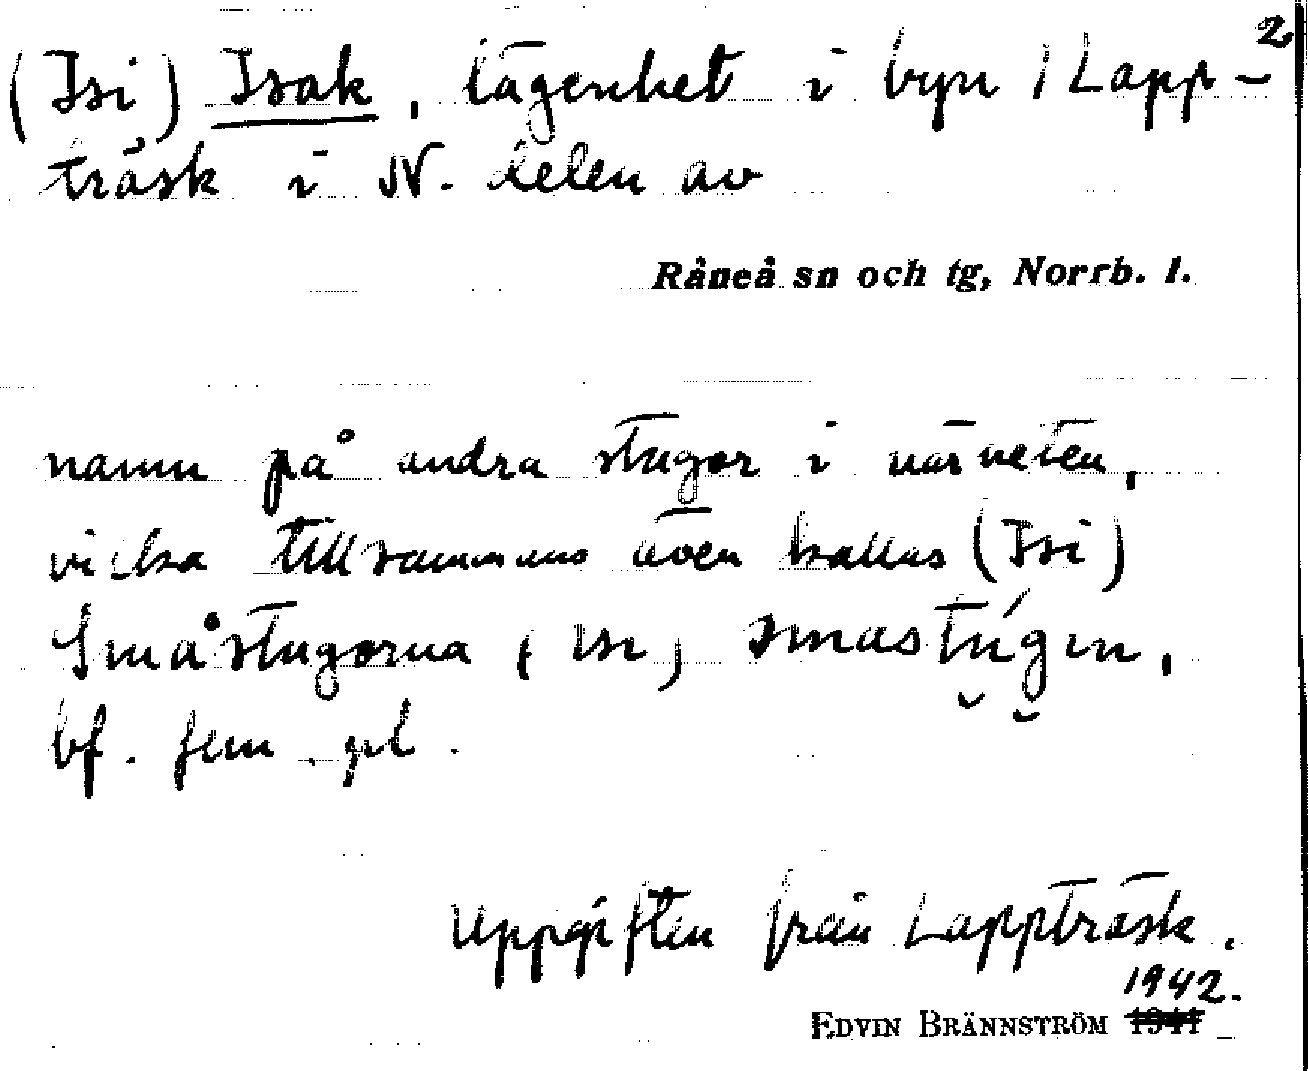 2
(Isi) Isak, lägenhet i byn 1 Lapp-
träsk i N. delen av
Råneå sn och tg, Norrb. l.
namn på andra stugor i närheten,
vilka tillsammans även kallas (Isi)
Småstugorna, smastúgın,
bf. fem. pl.
Uppgiften från Lappträsk.
1942.
EDVIN BRÄNNSTRÖM 1941